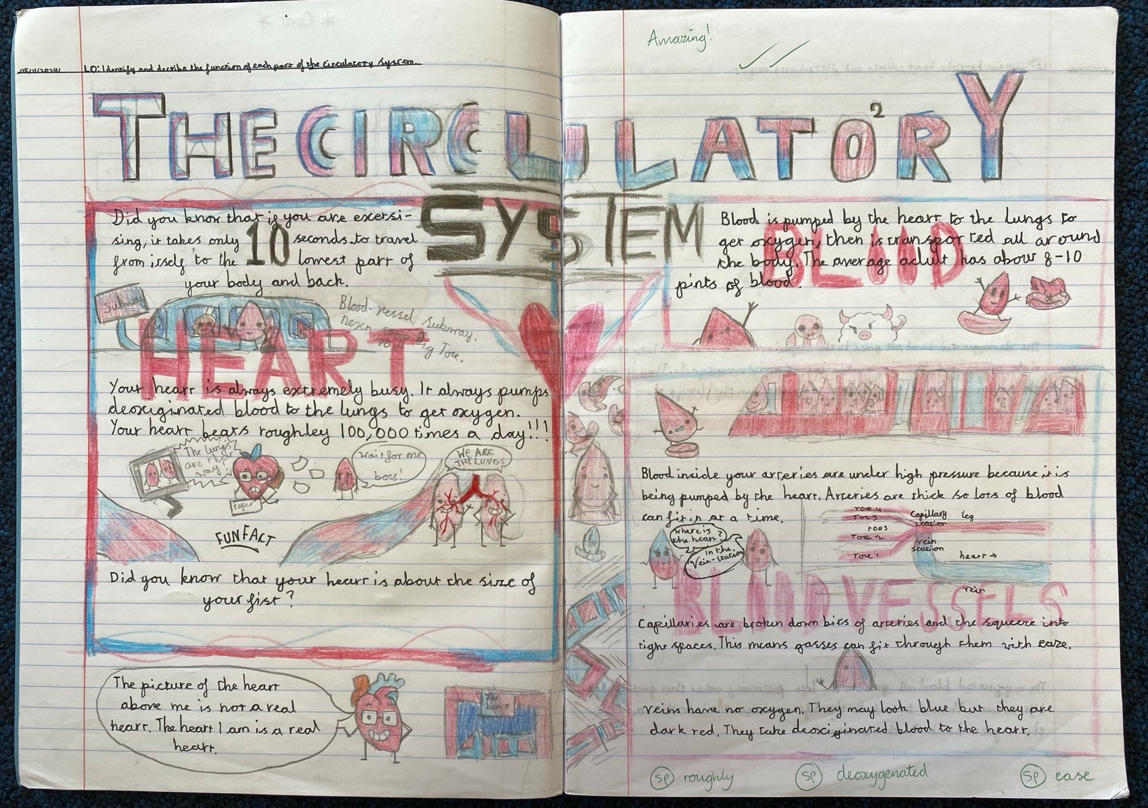 05/11/2024 LO: Identify and describe the function of each part of the circulatory system.
Amazing!
THE CIRCULATORY
2
SYSTEM
Did you know that if you are excersi-
sing, it takes only 10 seconds to travel
from itself to the lowest part of
your body and back.
Subway
Blood-vessel subway.
next Toe.
HEART
Your heart is always extremely busy. It always pumps
deoxiginated blood to the lungs to get oxygen.
Your heart beats roughley 100,000 times a day!!!
The lungs
are
Wait for me
boss!
WE ARE
THE LUNGS
FUN FACT
Did you know that your heart is about the size of
your fist?
The picture of the heart
above me is not a real
heart. The heart I am is a real
heart.
The
Blood is pumped by the heart to the lungs to
get oxygen, then is transported all around
the body. The average adult has about 8-10
pints of blood.
BLOOD
Blood inside your arteries are under high pressure because it is
being pumped by the heart. Arteries are thick so lots of blood
can fit in at a time.
Where is
the heart?
in the
Vein-station
Toe 4
Toe 3
Toe 2
Toe 1
Capillary
station
leg
vein
station
heart →
vein
BLOOD VESSELS
Capillaries are broken down bits of arteries and the squeeze into
tight spaces. This means gasses can fit through them with eaze.
Veins have no oxygen. They may look blue but they are
dark red. They take deoxiginated blood to the heart.
sp roughly sp deoxygenated sp ease